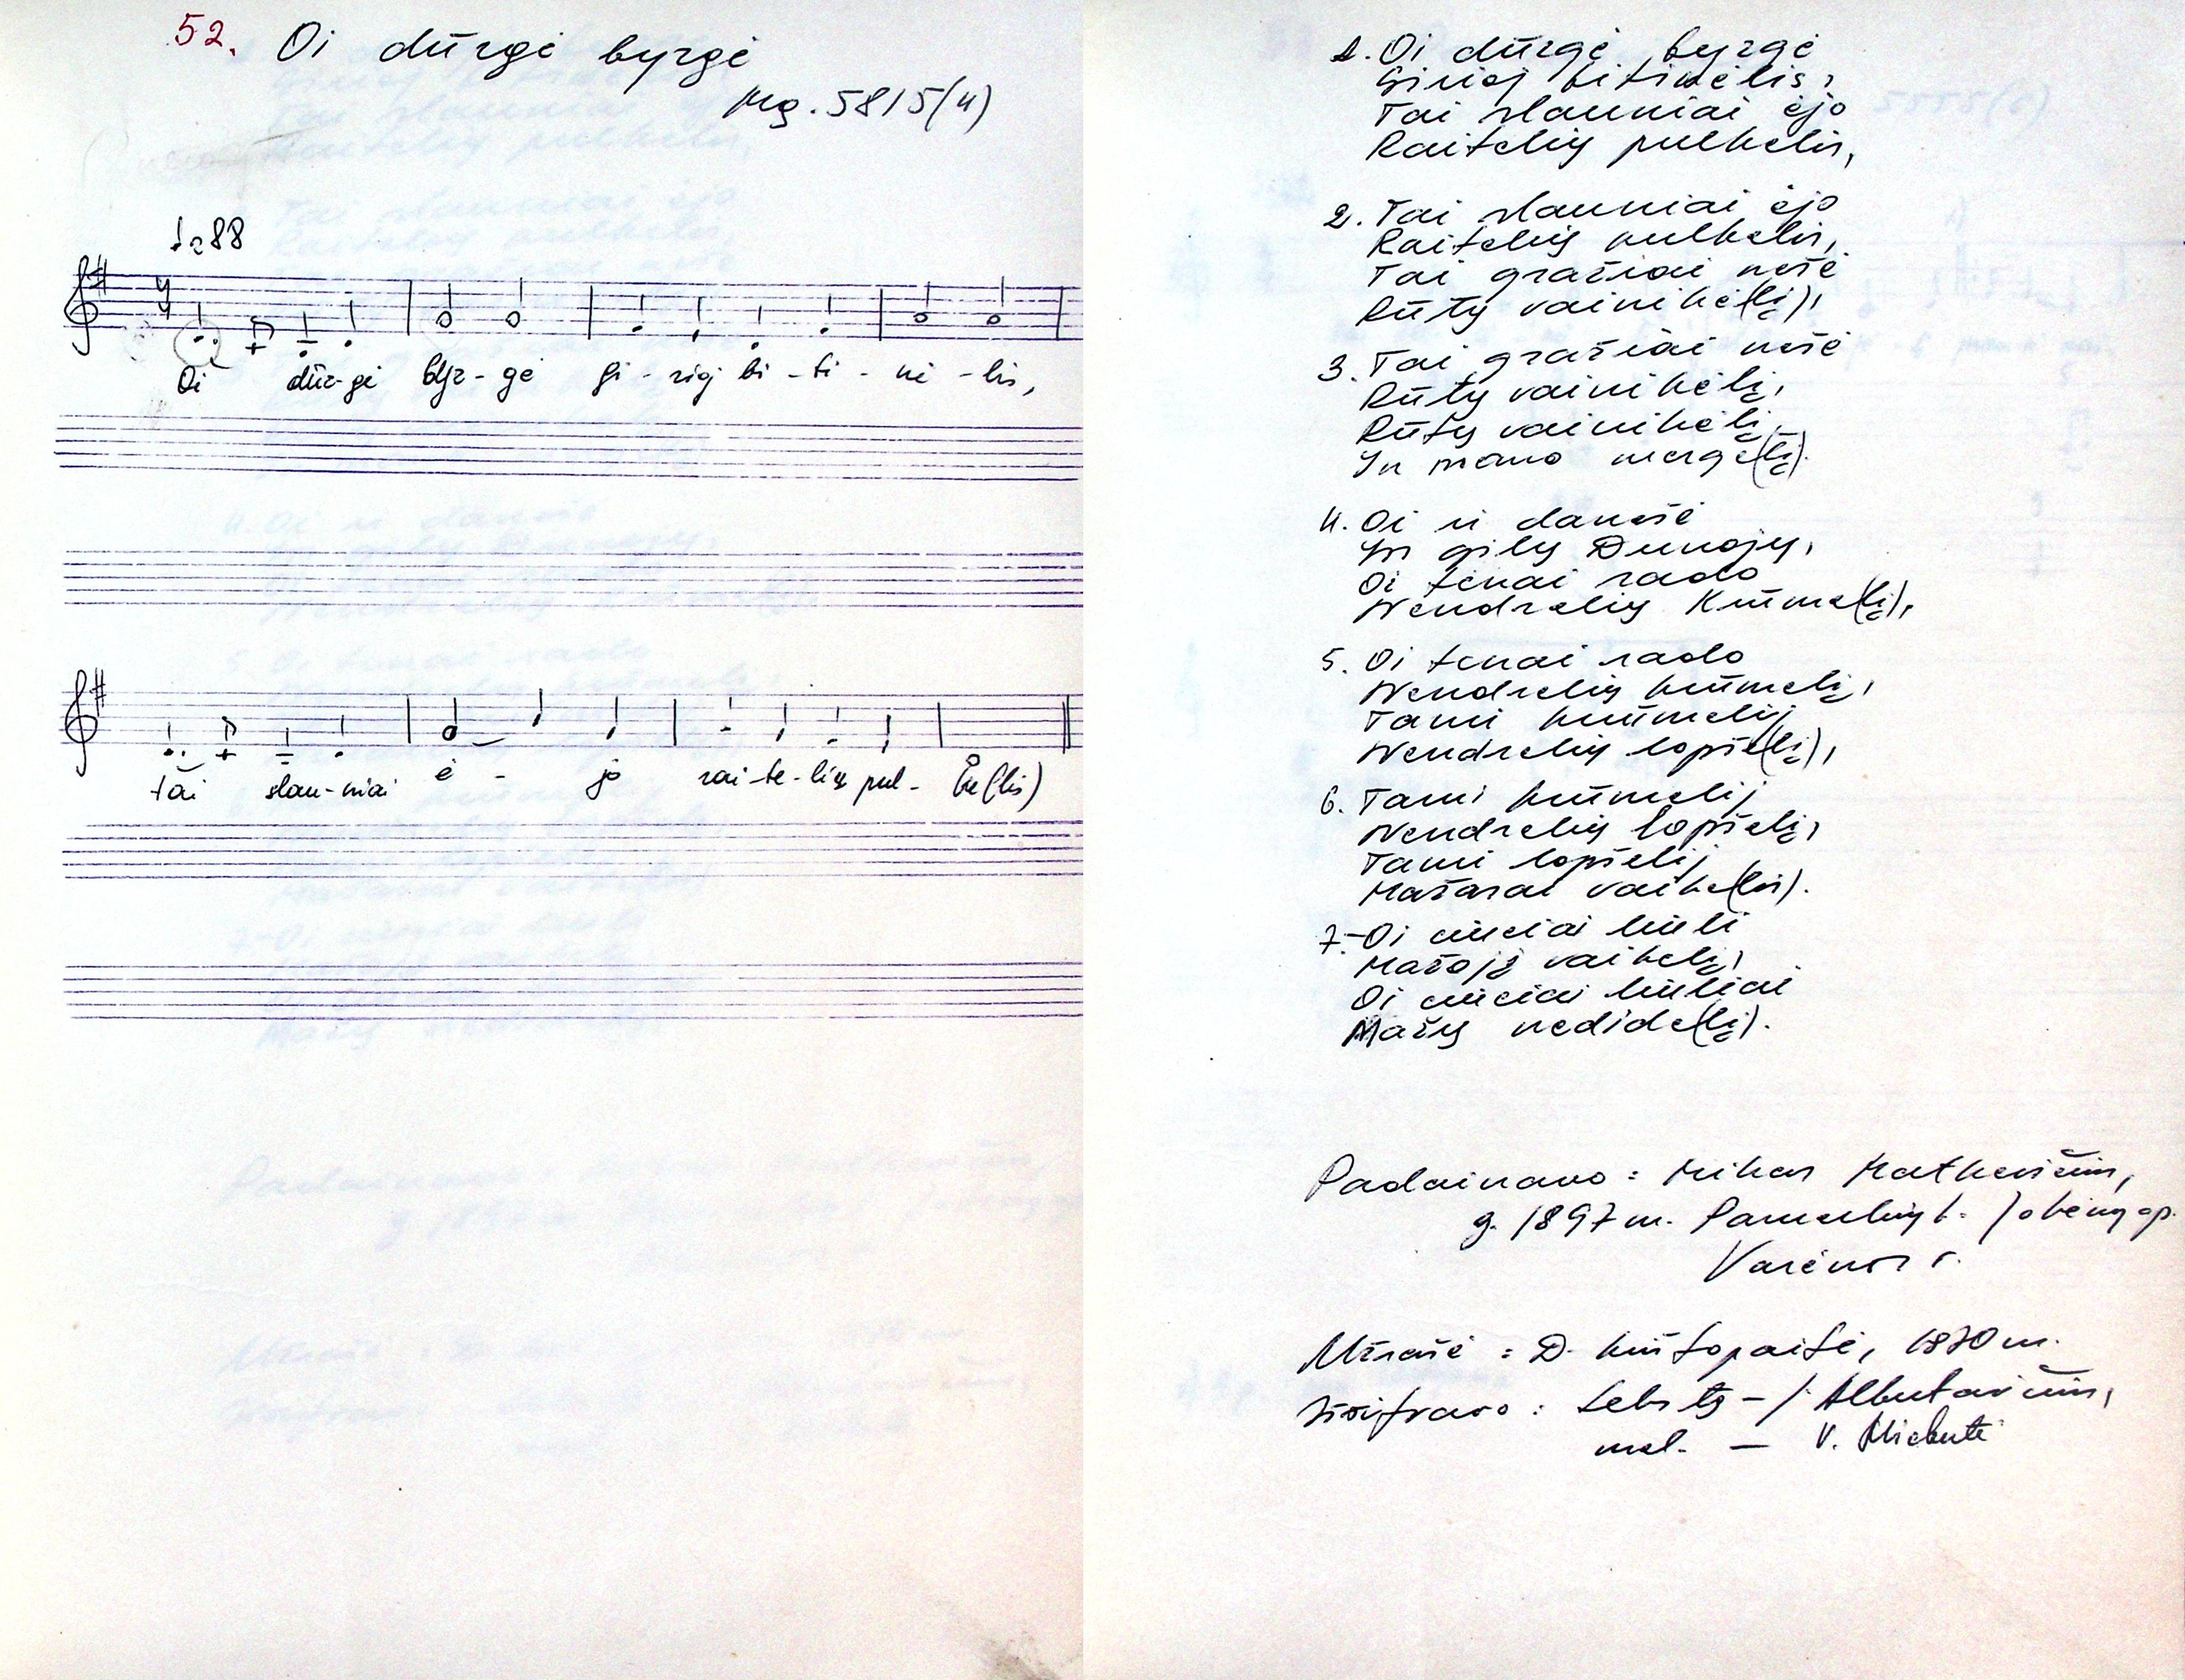 52. Oi dūrgė byrgė
Mg. 5815(4)
♩=88
Oi dūr-gė byr-gė gi-rioj bi-ti-nė-lis,
tai slau-niai ė-jo rai-te-lių pul-ke(lis)
1. Oi dūrgė byrgė
Girioj bitinėlis,
Tai slauniai ėjo
Raitelių pulkelis,
2. Tai slauniai ėjo
Raitelių pulkelis,
Tai gražiai nešė
Rūtų vainikė(lį),
3. Tai gražiai nešė
Rūtų vainikėlį,
Rūtų vainikėlį
In mano mergė(lį).
4. Oi ir danešė
In gilų Dunojų,
Oi tenai rado
Nendrelių krūme(lį),
5. Oi tenai rado
Nendrelių krūmelį,
Tami krūmelij
Nendrelių lopše(lį),
6. Tami krūmelij
Nendrelių lopšelį,
Tami lopšelij
Mažasai vaike(lis).
7. Oi čiučiai liuli
Mažąjį vaikelį,
Oi čiučiai liuliai
Mažų nedide(lį).
Padainavo: Mikas Matkevičius,
g. 1897 m. Pamerkių k. Jakėnų ap.
Varėnos r.
Užrašė: D. Krištopaitė, 1970 m.
Iššifravo: tekstą - J. Albutavičius,
mel. — V.